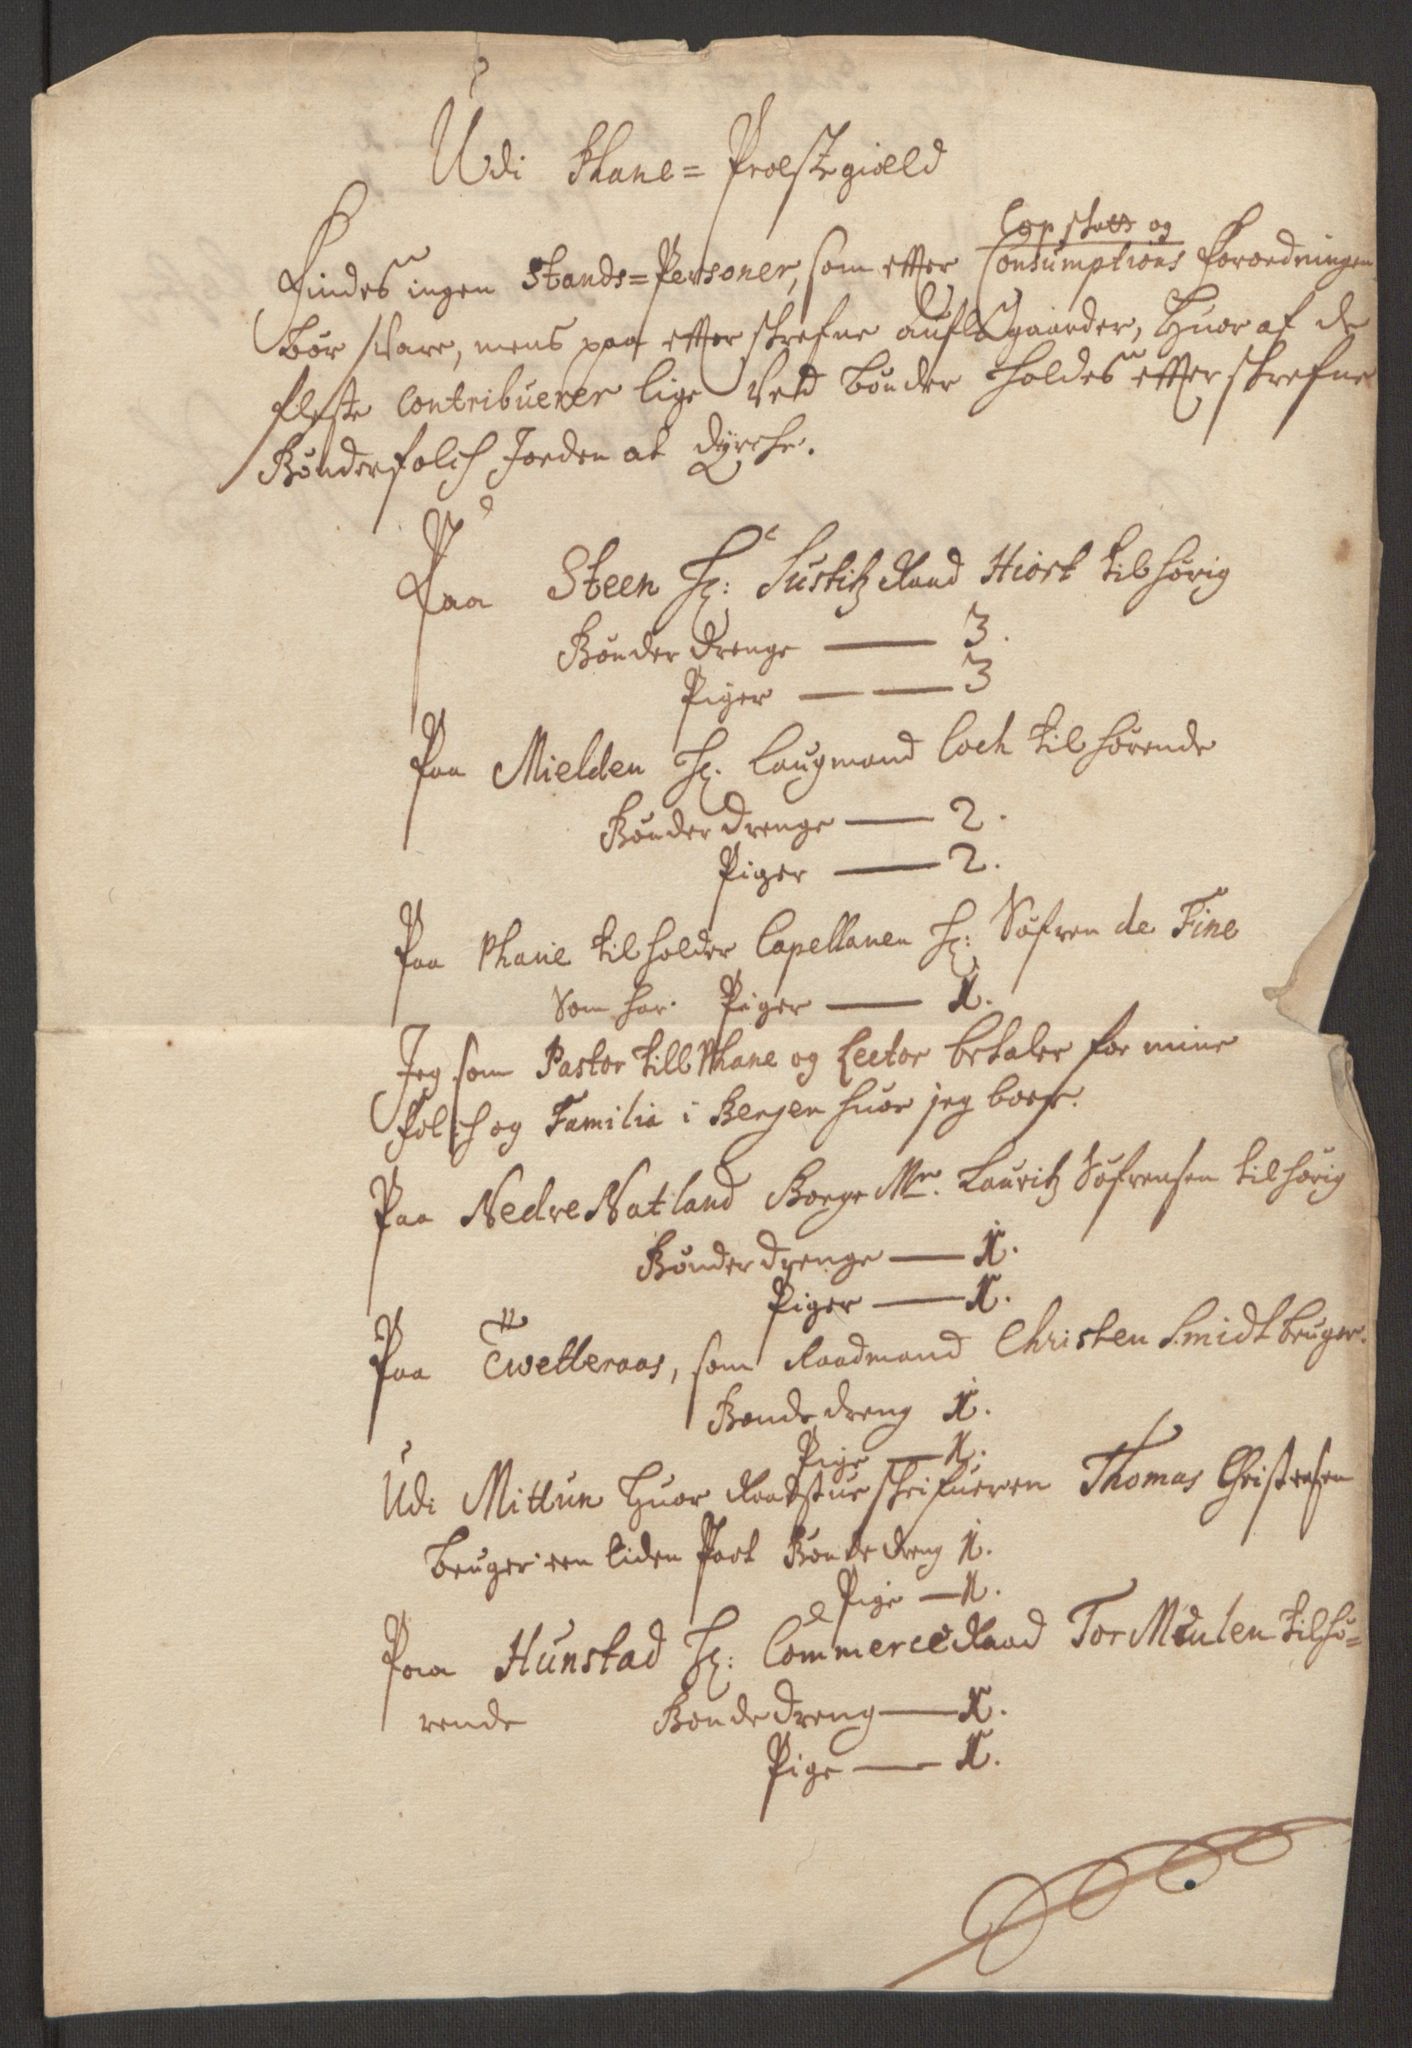 Udi Phane = Præstegiæld
Findes ingen Stands=Personer, som effter Cop skatts og Consumptions forordningen
bør svare, mens paa effterskrefne aufls gaarder, Huor af de
fleste Contribuerer lige Ved bønder holdes effterskrefne
Bønderfolch Jorden at dyrche.
Paa Steen Hr: Justitz Raad Hiort tilhørig
Bønder drenge — 3.
Piger — — 3
Paa Mielden Hr. Laugmand Coch tilhørende
Bønder drenge — 2.
Piger — 2.
Paa Phane tilholder Capellanen Hr: Søfren de Fine
Som har. Piger — 1.
Jeg som Pastor till Phane og Lector betaler for mine
folch og Familia i Bergen huor jeg boer.
Paa Nedre Natland Borge Mr. Lauritz Søfrensen tilhørig
Bønder drenge — 1.
Piger — 1.
Paa Twetteraas, som Raadmand Christen Smidt bruger.
Bonde dreng 1.
Pige — 1.
Udi Mittun Huor Raadstue skrifueren Thomas Christensen
bruger een liden Part Bonde dreng 1.
Pige — 1.
Paa Hunstad Hr: Commerce Raad Tor Møulen tilhø=
rende Bonde dreng — 1.
Pige — 1.